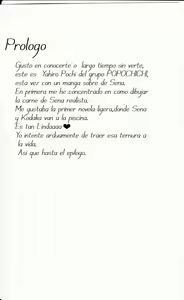 Prologo
Gusto en conocerte o largo tiempo sin verte,
este es Yahiro Pochi del grupo POPOCHICHI,
esta vez con un manga sobre de Sena.
En primera me he concentrado en como dibujar
la carne de Sena realista.
Me gustaba la primer novela ligera,donde Sena
y Kodaka van a la piscina.
Es tan Lindaaaa❤
Yo intente arduamente de traer esa ternura a
la vida.
Asi que hasta el epilogo.